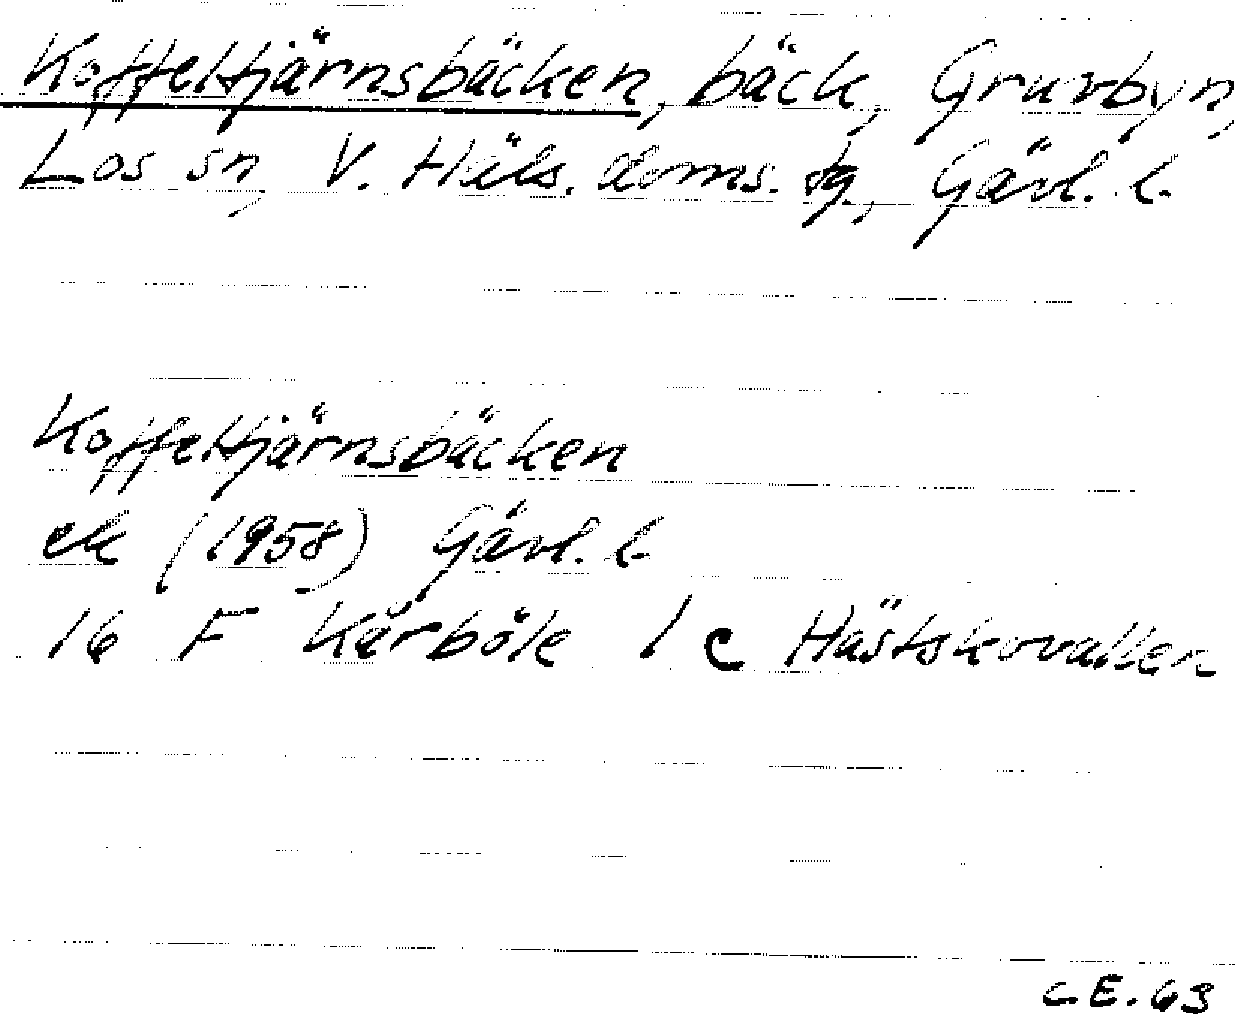 Koffeltjärnsbäcken, bäck, Gruvbyn,
Los sn, V. Häls. doms. tg., Gävl. l.
Koffeltjärnsbäcken
ek (1958) Gävl. l.
16 F Kårböle 1 c Hästskovallen
C.E. 63